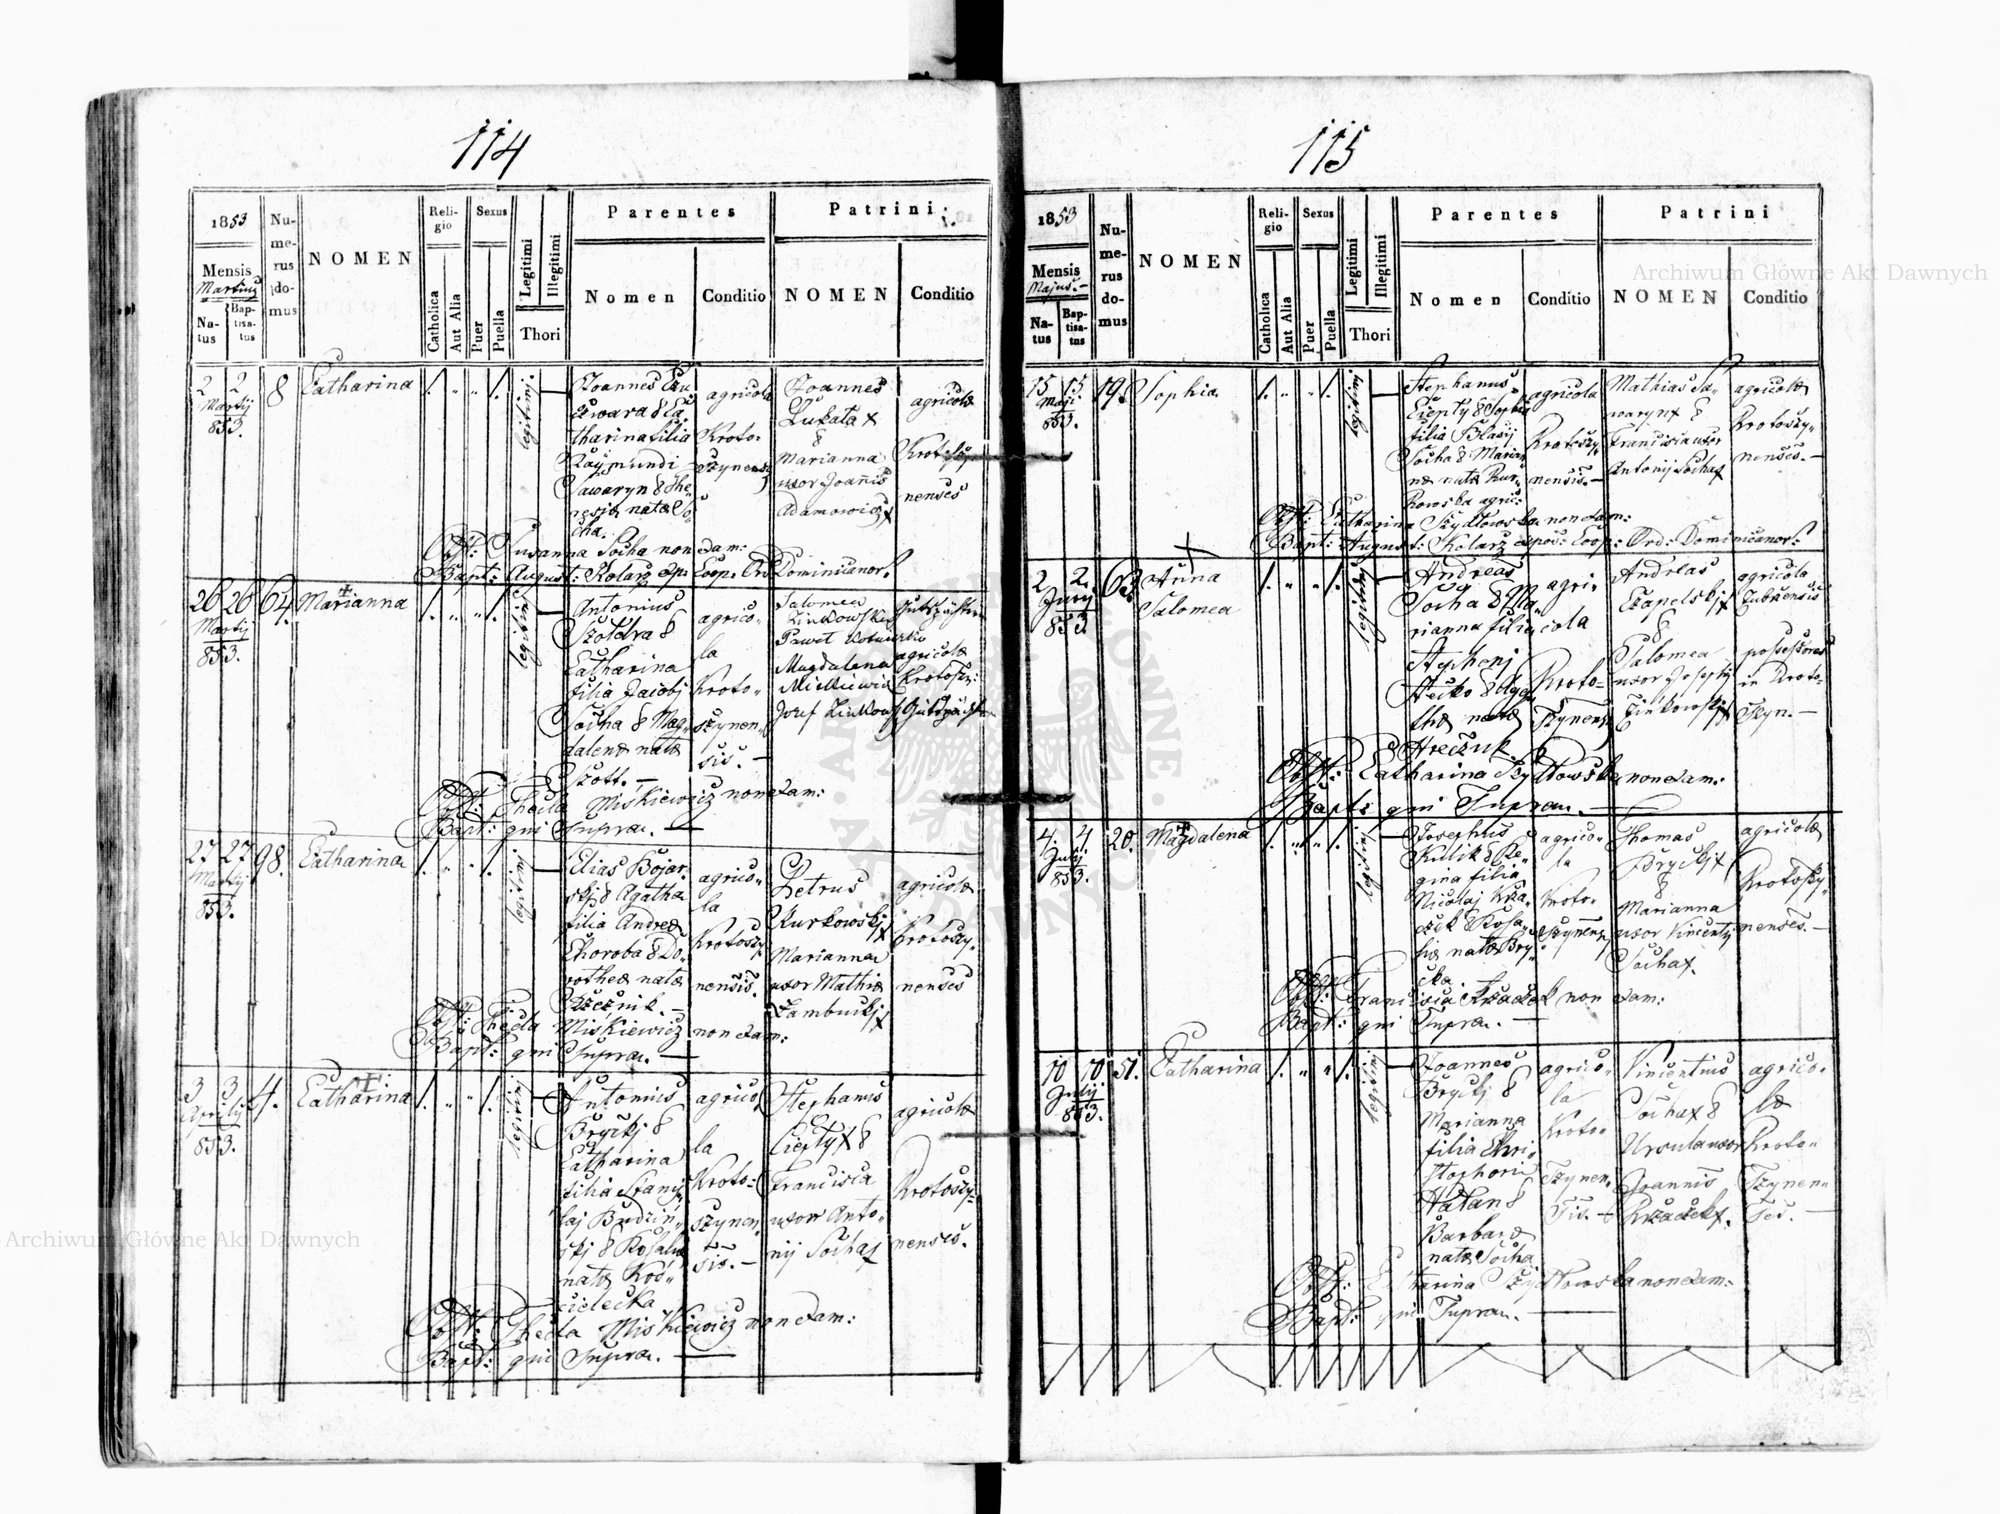 114
1853
Mensis
Martius
Na-
tus
Bap-
tisa-
tus
Nu-
me-
rus
do-
mus
NOMEN
Reli-
gio
Catholica
Aut Alia
Sexus
Puer
Puella
Legitimi
Illegitimi
Thori
Parentes
Nomen
Conditio
Patrini
NOMEN
Conditio
2 2
Martij
853.
8
Catharina
legitimi
Joannes
tharina filia
Raymundi
Sawaryn &
natæ So
cha.
agricola
Kroto-
szynens
Joannes
Łukata x
&
Marianna
uxor Joannis
Adamowicz x
agricolæ
Krotoszy
nenses
Obst: Susanna Socha non exam:
Bapt: August: Kolarz exp. Coop. Ord Dominicanor.
26 26
Martij
853.
64.
Marianna
legitimi
Antonius
Szoldra &
Catharina
filia Jacobi
Socha & Mag-
dalenæ natæ
Szott. —
agrico-
la
Kroto-
szynen-
sis. —
Salomea
Zinkowska
Paweł
Magdalena
Miskiewicz
Józef
agricolæ
Krotosz:
Obst: Thecla Miskiewicz non exam:
Bapt: qui Supra. —
27 27
Martij
853.
98.
Catharina
legitimi
Elias Bojar-
skj & Agatha
filia Andreæ
Choroba & Do-
rotheæ natæ
agrico-
la
Krotoszy-
nensis.
Petrus
Kurkowskj x
Marianna
uxor Mathiæ
Zambuckj x
agricolæ
Krotoszy-
nenses
Obst: Thecla Miskiewicz non exam:
Bapt: qui Supra. —
3 3
Aprilis
853.
4.
Catharina
legitimi
Antonius
Bryckj &
Catharina
filia Stanis-
laj Budziń-
skj & Rosaliæ
natæ Koś-
cielecka
agrico
la
Kroto-
szynen-
sis. —
Stephanus
Ciepły x &
Francisca
uxor Anto-
nij Socha x
agricolæ
Krotoszy-
nenses.
Obst: Thecla Miskiewicz non exam:
Bapt: qui Supra. —
115
1853
Mensis
Majus. —
Na-
tus
Bap-
tisa-
tus
Nu-
me-
rus
do-
mus
NOMEN
Reli-
gio
Catholica
Aut Alia
Sexus
Puer
Puella
Legitimi
Illegitimi
Thori
Parentes
Nomen
Conditio
Patrini
NOMEN
Conditio
15 15
Maji
853.
19.
Sophia
legitimi
Stephanus
Ciepły & Sophia
filia Blasij
Socha & Maria-
næ natæ Kur-
kowska agric:
agricola
Krotoszy-
nensis. —
Mathias Sa-
waryn x &
Francisca uxor
Antonij Socha x
agricolæ
Krotoszy-
nenses. —
Obst: Catharina Szydłowska non exam:
Bapt: August: Kolarz expos: Coop: Ord: Dominicanor:
2 2.
Junij
853.
63.
Anna
Salomea
legitimi
Andreas
Socha & Ma-
rianna filia
Stephanj
Hreczuk
agri-
cola
Kroto-
szynens
Andreas
Czapelskj x
&
Salomea
uxor Josephi
Zinkowskj x
agricola
Zubrensis
possessores
in Kroto-
szyn. —
Obst: Catharina Szydłowska non exam:
Bapt: qui Supra. —
4 4
Julij
853.
20.
Magdalena
legitimi
Josephus
Kulik & Re-
gina filia
Nicolaj Krza-
czek & Rosa-
liæ natæ Bry-
cka.
agrico-
la
Kroto-
szynens
Thomas
Bryckj x
&
Marianna
uxor Vincentij
Socha x.
agricolæ
Krotoszy-
nenses. —
Obst: Francisca Krzaczek non exam:
Bapt: qui Supra. —
10 10
Julij
853.
51.
Catharina
legitimi
Joannes
Bryckj &
Marianna
filia Chri-
stophori
Hałan &
Barbaræ
natæ Socha
agrico-
la
Kroto-
szynen-
sis. —
Vincentius
Socha x &
Ursula uxor
Joannis
Krzaczek x.
agrico-
læ
Kroto-
szynen-
ses. —
Obst: Catharina Szydłowska non exam:
Bapt: qui Supra. —
Archiwum Główne Akt Dawnych
Archiwum Główne Akt Dawnych